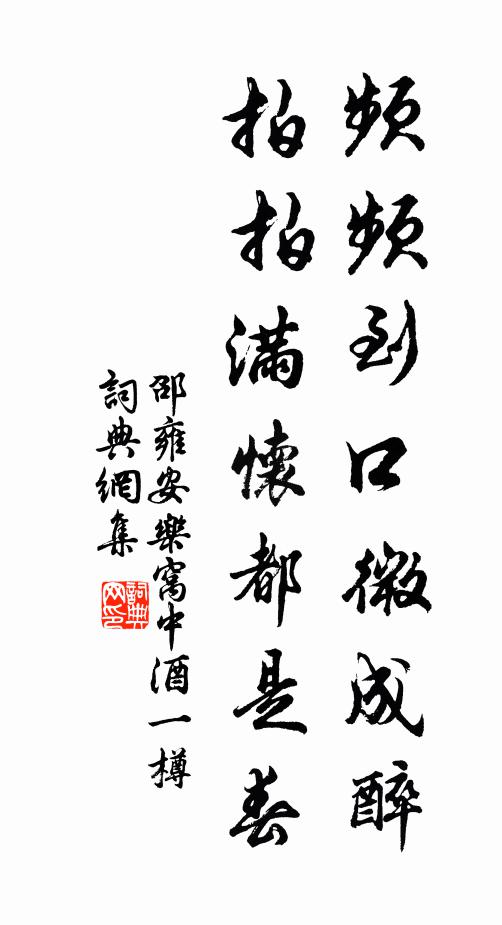 頻頻到口微成醉
拍拍滿懷都是春
邵雍安樂窩中酒一樽
詞典網集
詞典网印